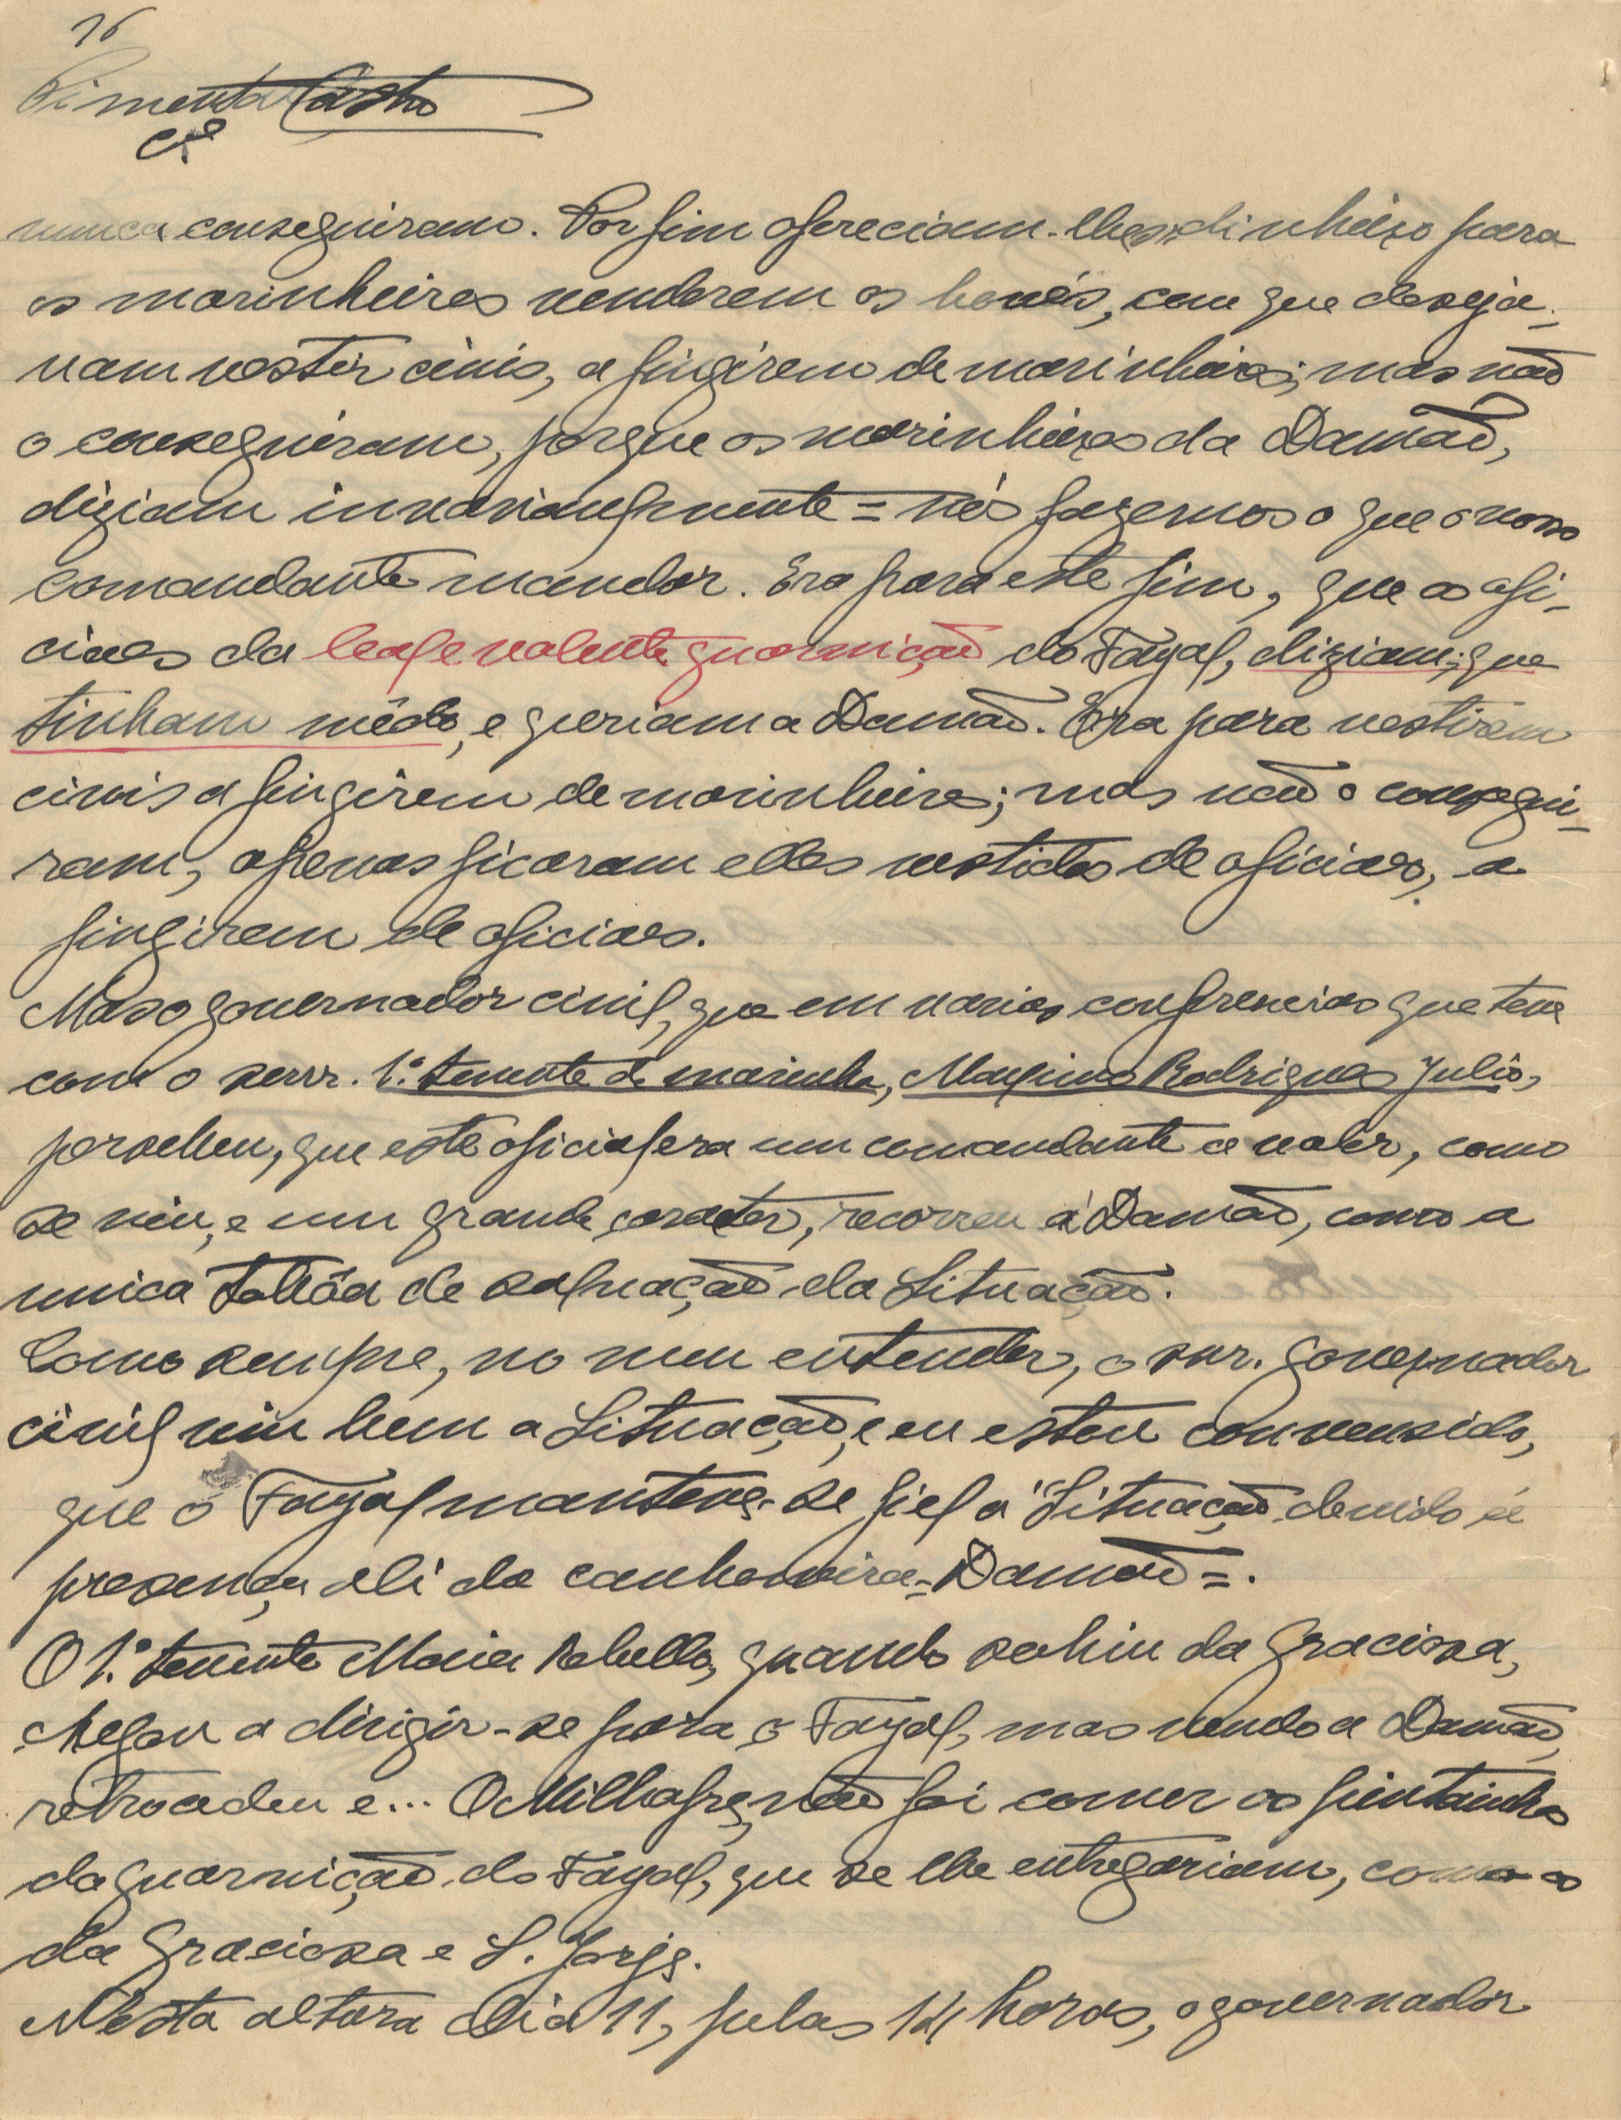 16
Pimenta Castro
nunca conseguiram. Por fim ofereciam-lhes dinheiro para
os marinheiros venderem os bonés, com que deseja-
vam vestir civis, a fingirem de marinheiros; mas não
o conseguiram, porque os marinheiros da Damão,
diziam invariavelmente = nós fazemos o que o nosso
comandante mandar. Era para este fim, que os ofi-
ciaes da leal e valente guarnição do Fayal, diziam, que
tinham mêdo, e queriam a Damão. Era para vestirem
civis a fingirem de marinheiros; mas não o consegui-
ram, apenas ficaram elles vestidos de oficiaes, a
fingirem de oficiaes.
Mas o governador civil, que em varias conferencias que teve
com o senr. 1.º tenente de marinha, Maximo Rodrigues Julio,
percebeu, que este oficial era um comandante de valor, como
se viu, e um grande caracter, recorreu á Damão, como a
unica taboa de salvação da Situação.
Como sempre, no meu entender, o snr. governador
civil viu bem a Situação, e eu estou convensido,
que o Fayal manteve-se fiel á Situação devido á
presença ali da canhoneira = Damão =.
O 1.º tenente Maia Rebello, quando sahiu da Graciosa,
chegou a dirigir-se para o Fayal, mas vendo a Damão,
retrocedeu e... O Milhafre, não foi comer os pintainhos
da guarnição do Fayal, que se lhe entregariam, como os
da Graciosa e S. Jorge.
N'esta altura dia 11, pelas 14 horas, o governador